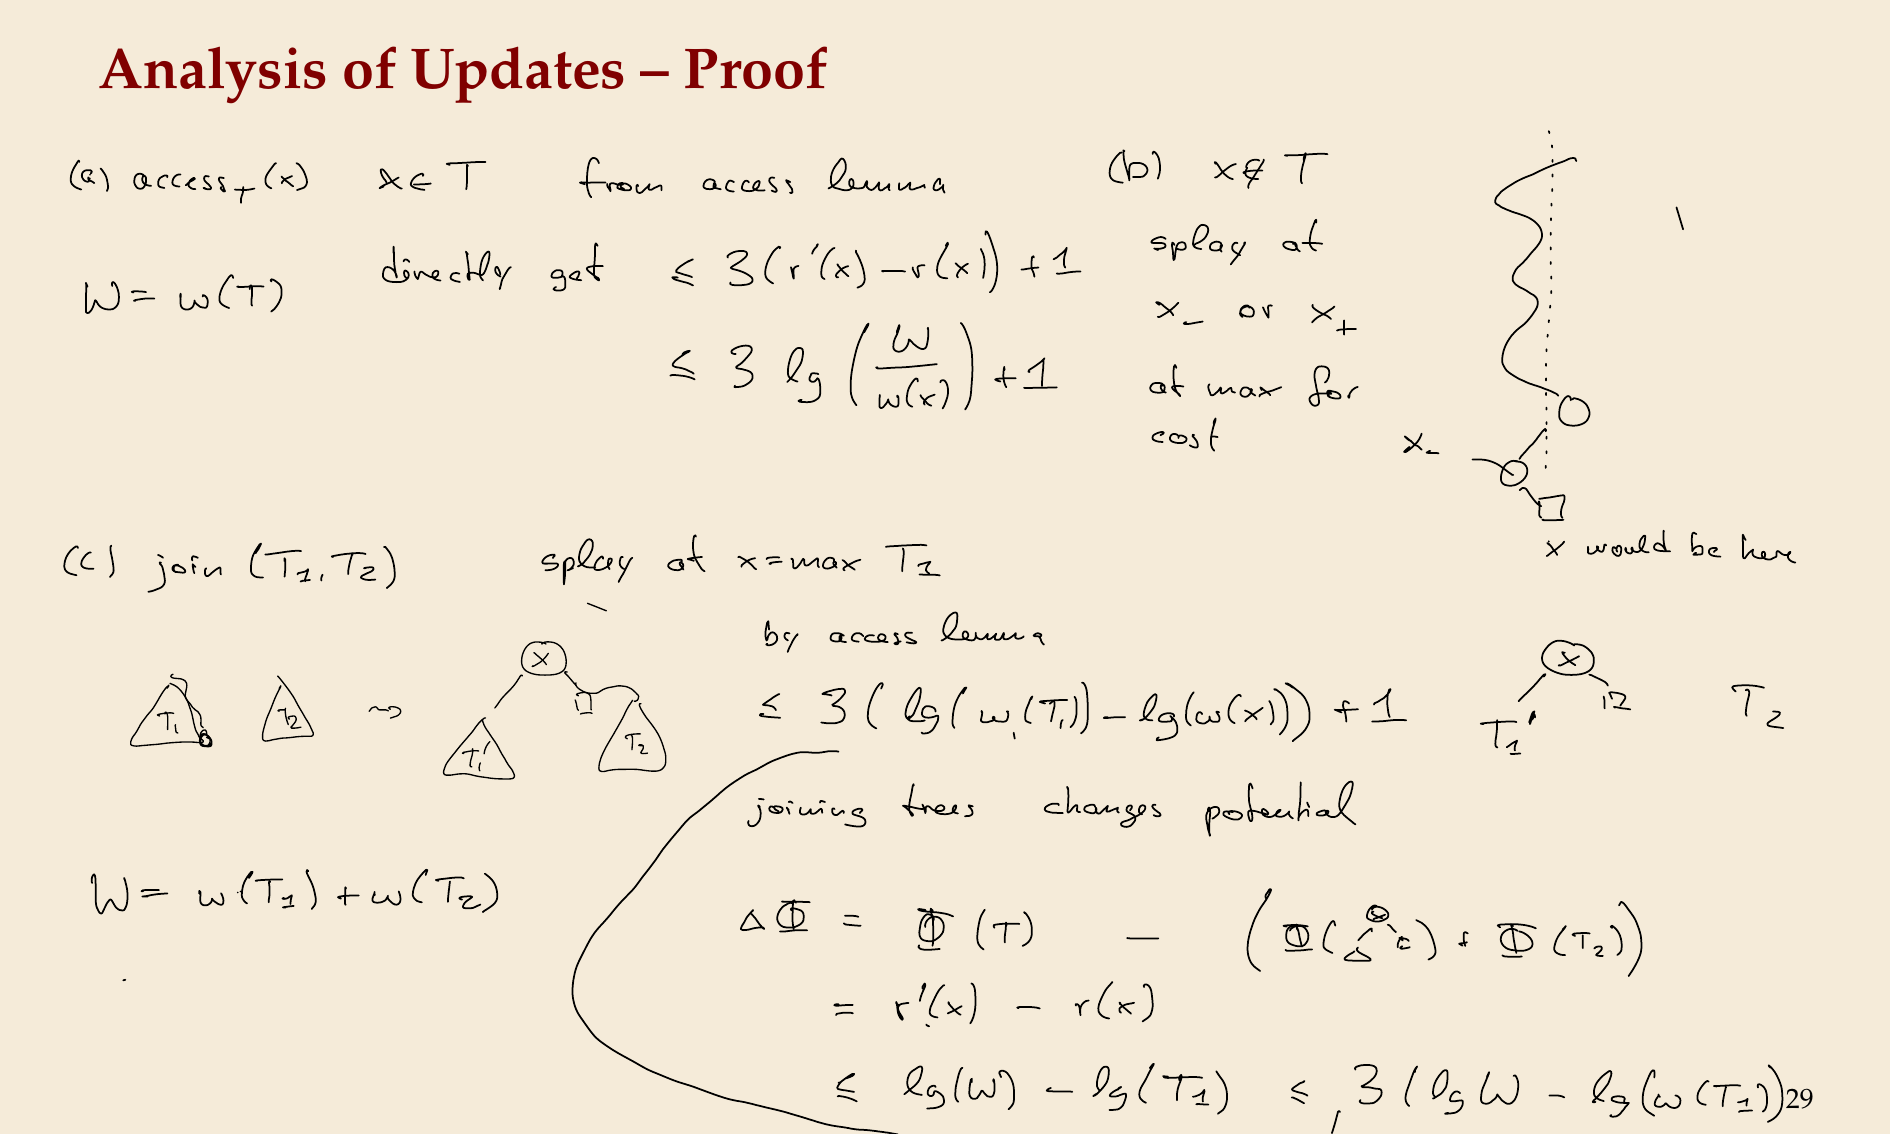 Analysis of Updates – Proof
(a) access_T(x) x ∈ T from access lemma
W = w(T) directly get ≤ 3(r'(x) – r(x)) + 1
≤ 3 lg (W / w(x)) + 1
(b) x ∉ T
splay at
x_- or x_+
at max for
cost
x_-
x would be here
(c) join (T_1, T_2) splay at x = max T_1
by access lemma
T_1 T_2 ⇝ x T_1' T_2
≤ 3 (lg(w(T_1)) – lg(w(x))) + 1
x T_1' T_2
joining trees changes potential
W = w(T_1) + w(T_2)
ΔΦ = Φ(T) – (Φ( x ) + Φ(T_2))
= r'(x) – r(x)
≤ lg(W) – lg(T_1) ≤ 3 (lg W – lg(w(T_1))
29